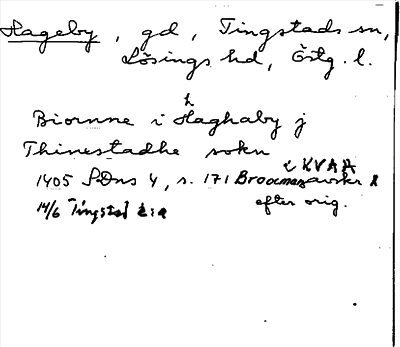 Hageby, gd, Tingstads sn,
Lösings hd, Östg. l.
h
Biornne i Haghaby j
Thinestadhe sokn
i KVAH
1405 SDns 4, s. 171 Broocmans avskr
14/6 Tingstad efter orig.